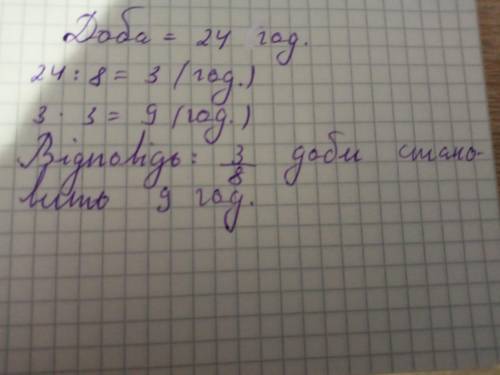 Доба = 24 год.
24 : 8 = 3 (год.)
3 · 3 = 9 (год.)
Відповідь: 3/8 доби стано-
вить 9 год.